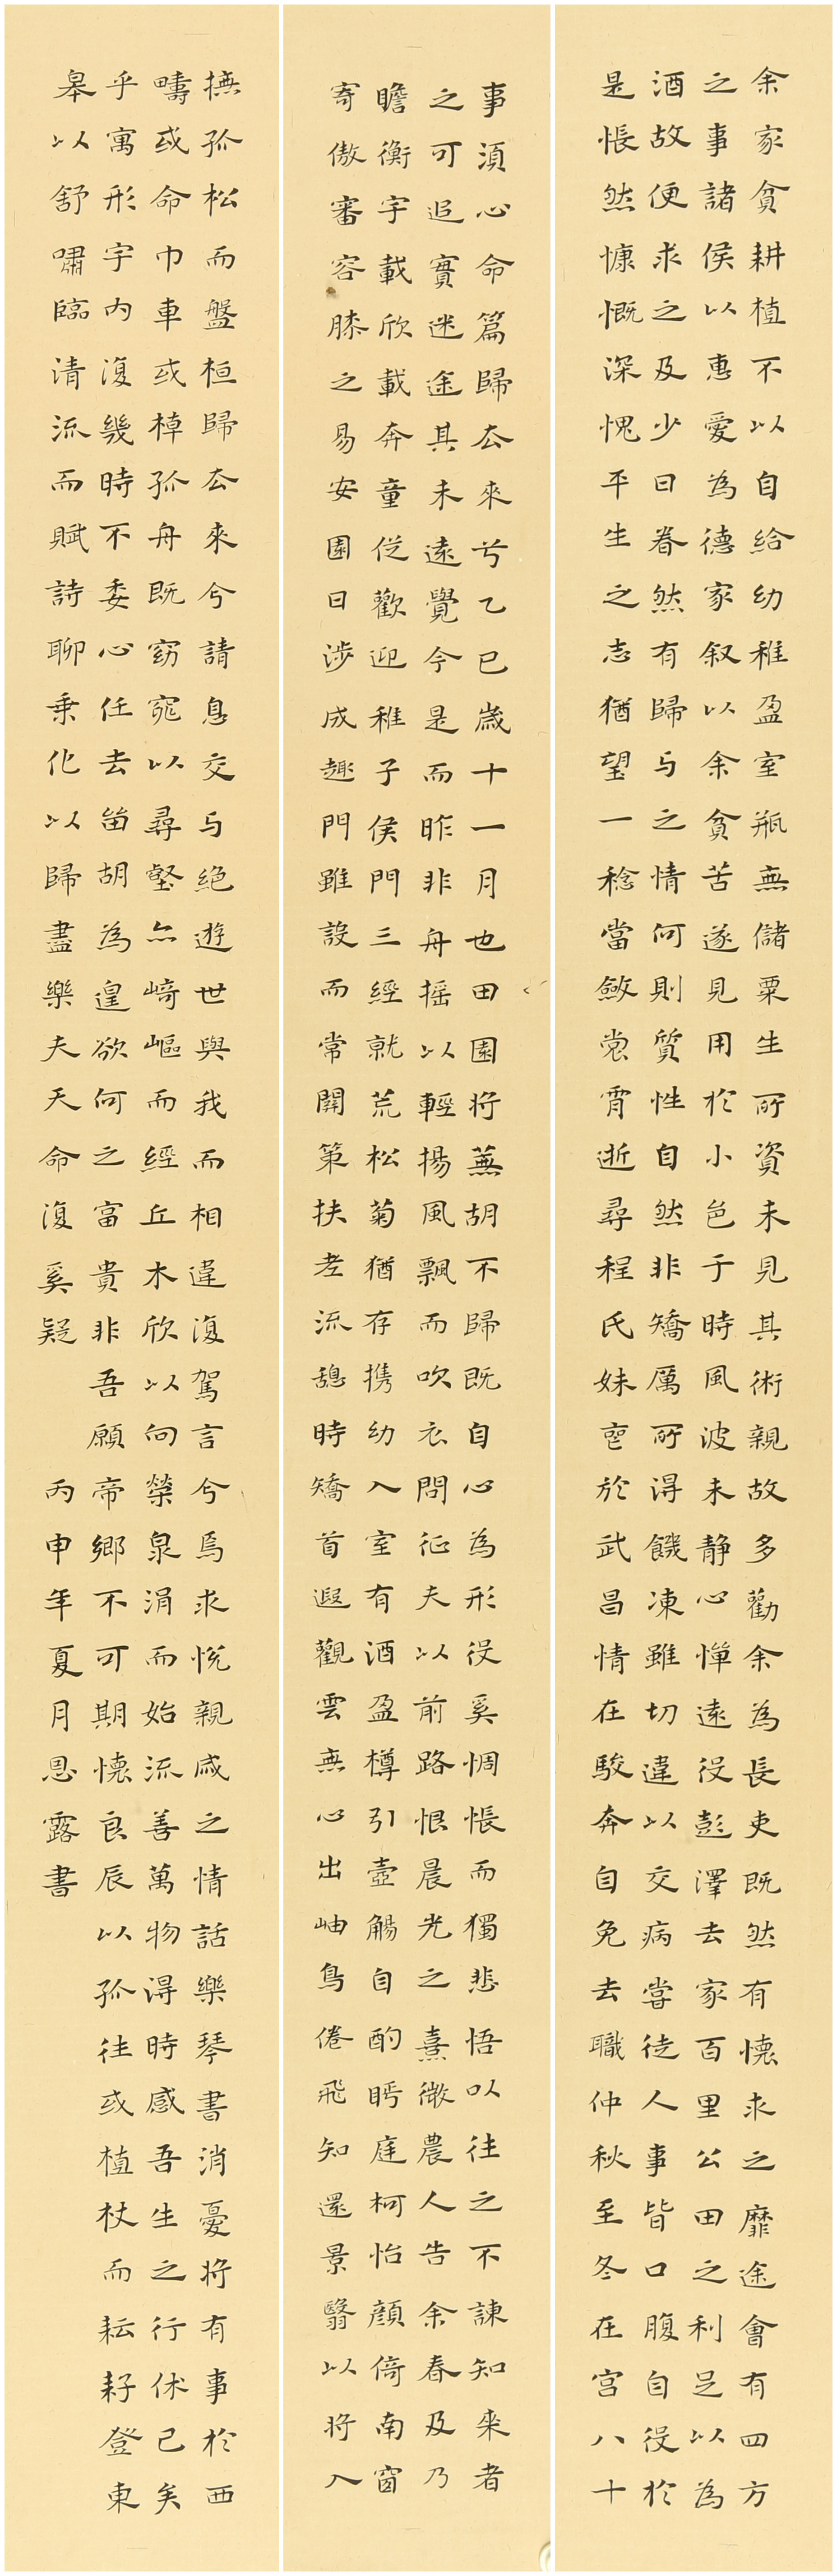 余家貧耕植不以自給幼稚盈室瓶無儲粟生所資未見其術親故多勸余為長吏既然有懷求之靡途會有四方
之事諸侯以惠愛為德家叙以余貧苦遂見用於小邑于時風波未静心憚遠役彭澤去家百里公田之利足以為
酒故便求之及少日眷然有歸与之情何則質性自然非矯厲所得饑凍雖切違以交病嘗従人事皆口腹自役於
是悵然慷慨深愧平生之志猶望一稔當斂裳宵逝尋程氏妹喪於武昌情在駿奔自免去職仲秋至冬在宫八十
事湏心命篇歸去來兮乙巳歳十一月也田園将蕪胡不歸既自心為形役奚惆悵而獨悲悟以往之不諌知来者
之可追實迷途其未遠覺今是而昨非舟摇以輕揚風飄而吹衣問征夫以前路恨晨光之熹微農人告余春及乃
瞻衡宇載欣載奔童従歡迎稚子侯門三經就荒松菊猶存携幼入室有酒盈樽引壺觴自酌眄庭柯怡顔倚南窗
寄傲審容膝之易安園日渉成趣門雖設而常関策扶老流憩時矯首遐觀雲無心出岫鳥倦飛知還景翳以将入
撫孤松而盤桓歸去來兮請息交与絶遊世與我而相違復駕言兮焉求悦親戚之情話樂琴書消憂将有事於西
疇或命巾車或棹孤舟既窈窕以尋壑亦崎嶇而經丘木欣以向榮泉涓而始流善萬物得時感吾生之行休已矣
乎寓形宇内復幾時不委心任去留胡為遑欲何之富貴非吾願帝鄉不可期懷良辰以孤往或植杖而耘耔登東
皋以舒嘯臨清流而賦詩聊乗化以歸盡樂夫天命復奚疑 丙申年夏月恩露書